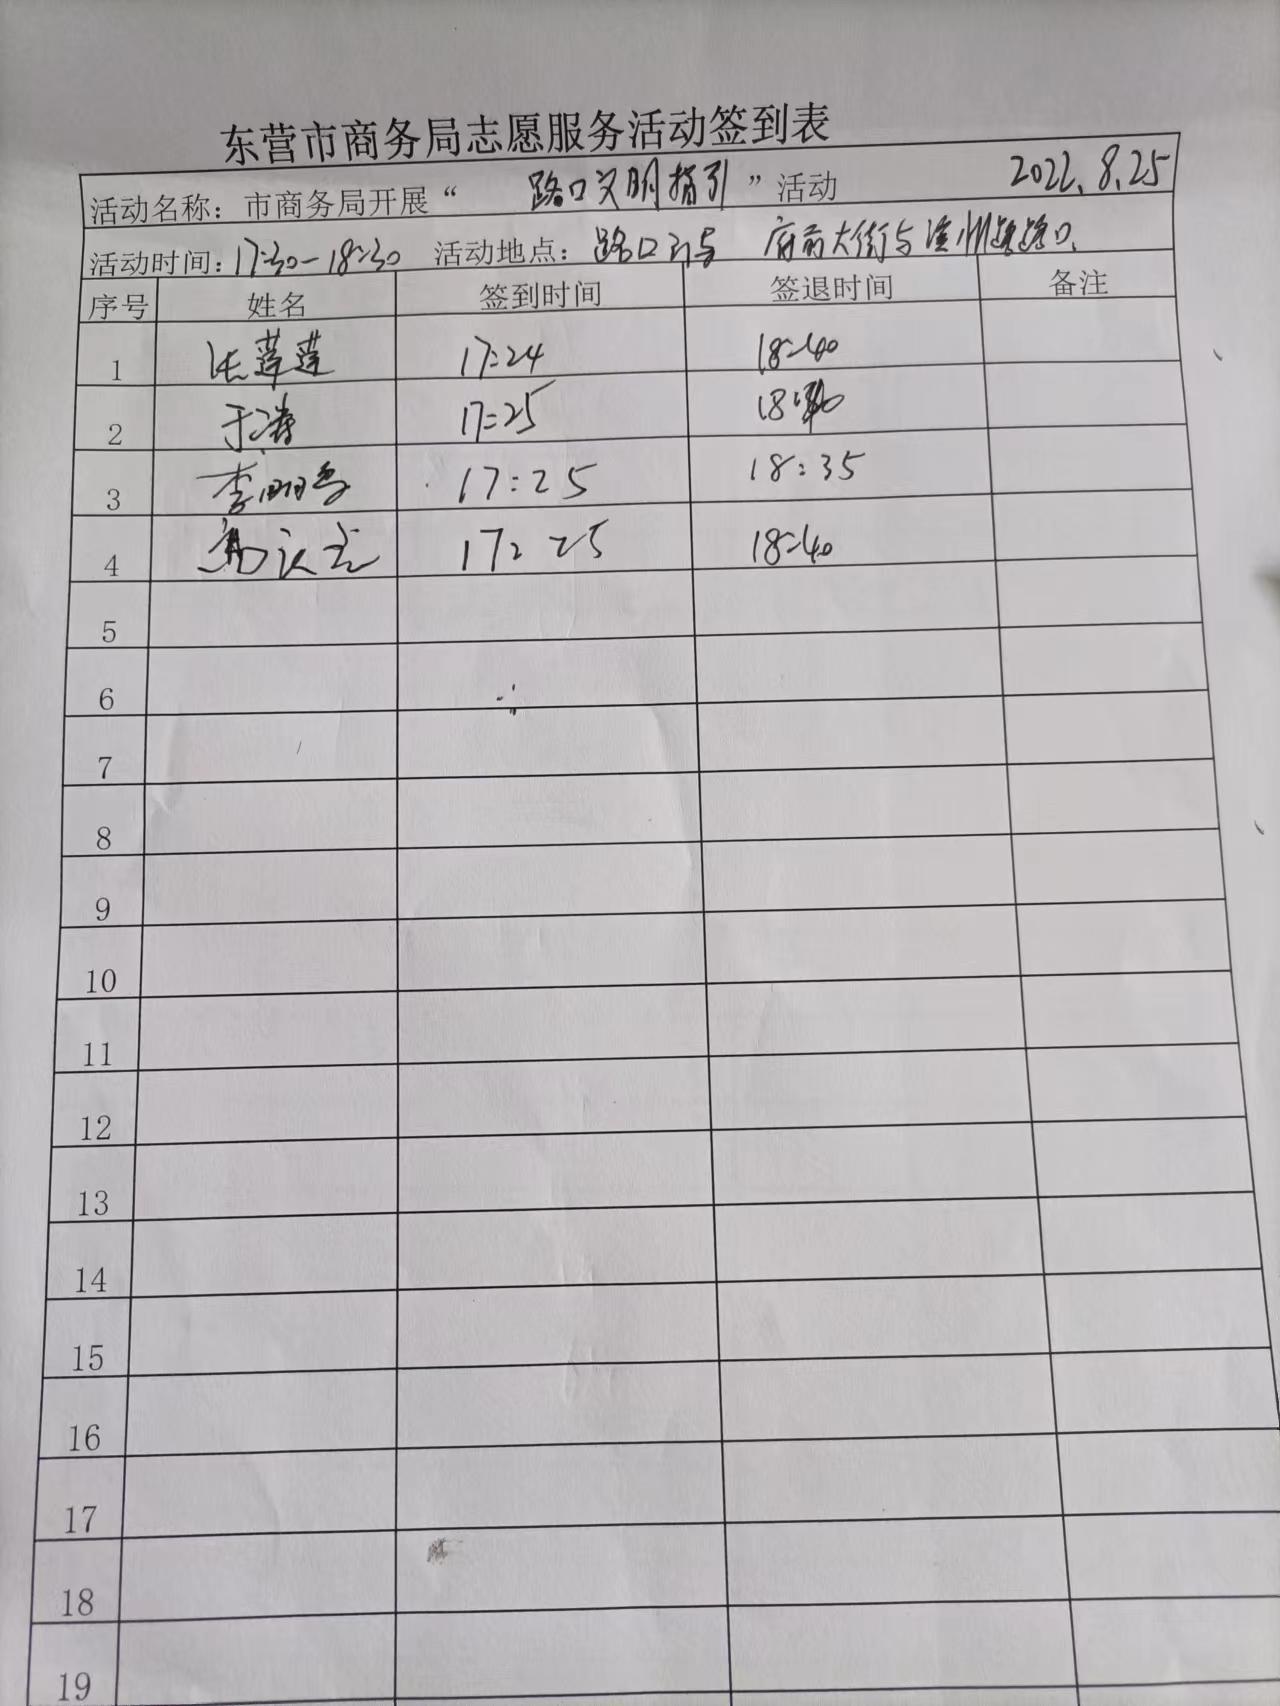 东营市商务局志愿服务活动签到表
活动名称：市商务局开展“ 路口文明指引 ”活动 2022.8.25
活动时间：17:30-18:30 活动地点：路口 府前大街与 路口
序号 姓名 签到时间 签退时间 备注
1 张莲莲 17:24 18:40
2 于涛 17:25 18:40
3 李 17:25 18:35
4 17:25 18:40
5
6
7
8
9
10
11
12
13
14
15
16
17
18
19